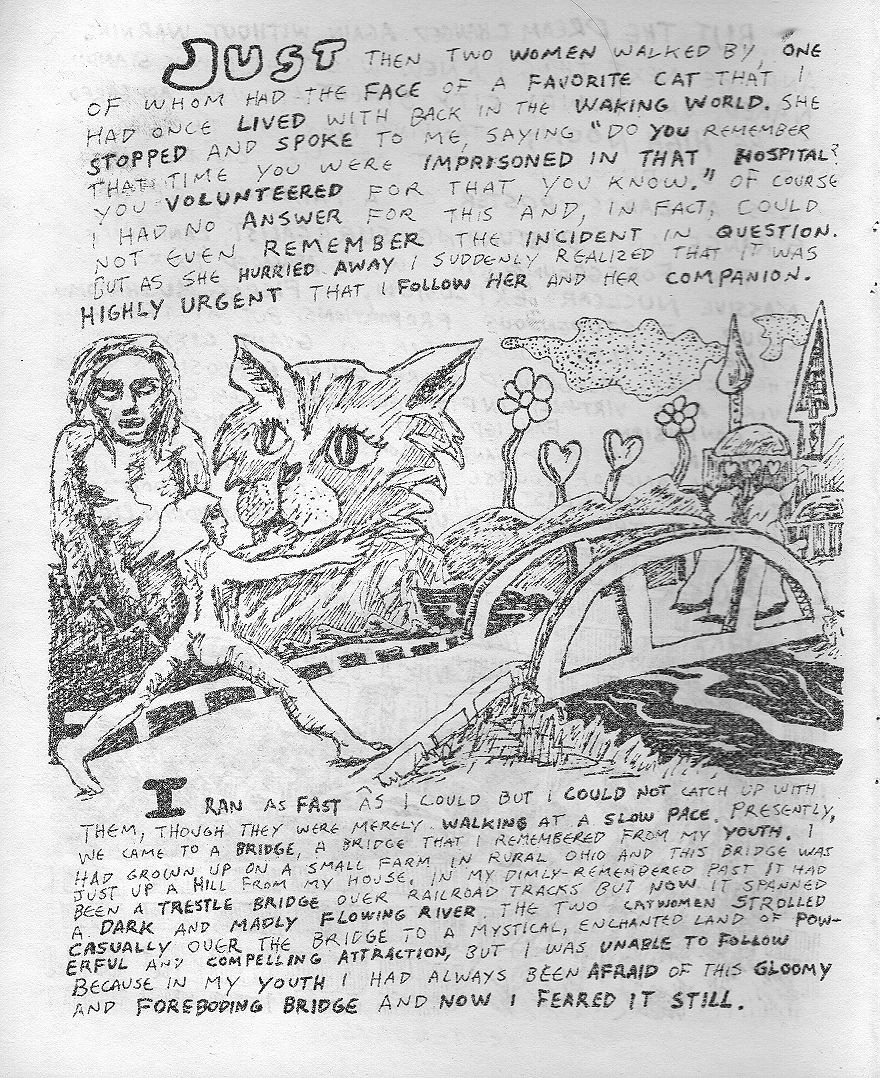 JUST THEN TWO WOMEN WALKED BY, ONE
OF WHOM HAD THE FACE OF A FAVORITE CAT THAT I
HAD ONCE LIVED WITH BACK IN THE WAKING WORLD. SHE
STOPPED AND SPOKE TO ME, SAYING "DO YOU REMEMBER
THAT TIME YOU WERE IMPRISONED IN THAT HOSPITAL?
YOU VOLUNTEERED FOR THAT, YOU KNOW." OF COURSE
I HAD NO ANSWER FOR THIS AND, IN FACT, COULD
NOT EVEN REMEMBER THE INCIDENT IN QUESTION.
BUT AS SHE HURRIED AWAY I SUDDENLY REALIZED THAT IT WAS
HIGHLY URGENT THAT I FOLLOW HER AND HER COMPANION.
I RAN AS FAST AS I COULD BUT I COULD NOT CATCH UP WITH
THEM, THOUGH THEY WERE MERELY WALKING AT A SLOW PACE. PRESENTLY,
WE CAME TO A BRIDGE, A BRIDGE THAT I REMEMBERED FROM MY YOUTH. I
HAD GROWN UP ON A SMALL FARM IN RURAL OHIO AND THIS BRIDGE WAS
JUST UP A HILL FROM MY HOUSE. IN MY DIMLY-REMEMBERED PAST IT HAD
BEEN A TRESTLE BRIDGE OVER RAILROAD TRACKS BUT NOW IT SPANNED
A DARK AND MADLY FLOWING RIVER. THE TWO CATWOMEN STROLLED
CASUALLY OVER THE BRIDGE TO A MYSTICAL, ENCHANTED LAND OF POW-
ERFUL AND COMPELLING ATTRACTION, BUT I WAS UNABLE TO FOLLOW
BECAUSE IN MY YOUTH I HAD ALWAYS BEEN AFRAID OF THIS GLOOMY
AND FOREBODING BRIDGE AND NOW I FEARED IT STILL.